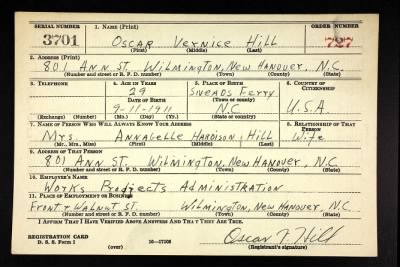 SERIAL NUMBER 1. NAME (Print) ORDER NUMBER
3701 OSCAR VERNICE HILL 727
(First) (Middle) (Last)
2. ADDRESS (Print)
801 ANN ST. WILMINGTON, NEW HANOVER, N.C.
(Number and street or R. F. D. number) (Town) (County) (State)
3. TELEPHONE 4. AGE IN YEARS 5. PLACE OF BIRTH 6. COUNTRY OF CITIZENSHIP
29 SNEADS FERRY
DATE OF BIRTH (Town or county)
9-11-1911 N.C. U.S.A.
(Exchange) (Number) (Mo.) (Day) (Yr.) (State or country)
7. NAME OF PERSON WHO WILL ALWAYS KNOW YOUR ADDRESS 8. RELATIONSHIP OF THAT PERSON
MRS. ANNABELLE HARDISON HILL WIFE
(Mr., Mrs., Miss) (First) (Middle) (Last)
9. ADDRESS OF THAT PERSON
801 ANN ST. WILMINGTON, NEW HANOVER, N.C
(Number and street or R. F. D. number) (Town) (County) (State)
10. EMPLOYER'S NAME
WORKS PROJECTS ADMINISTRATION
11. PLACE OF EMPLOYMENT OR BUSINESS
FRONT & WALNUT ST. WILMINGTON, NEW HANOVER, N.C.
(Number and street or R. F. D. number) (Town) (County) (State)
I AFFIRM THAT I HAVE VERIFIED ABOVE ANSWERS AND THAT THEY ARE TRUE.
REGISTRATION CARD
D. S. S. Form 1 (over) 16-17105 Oscar V. Hill
(Registrant's signature)